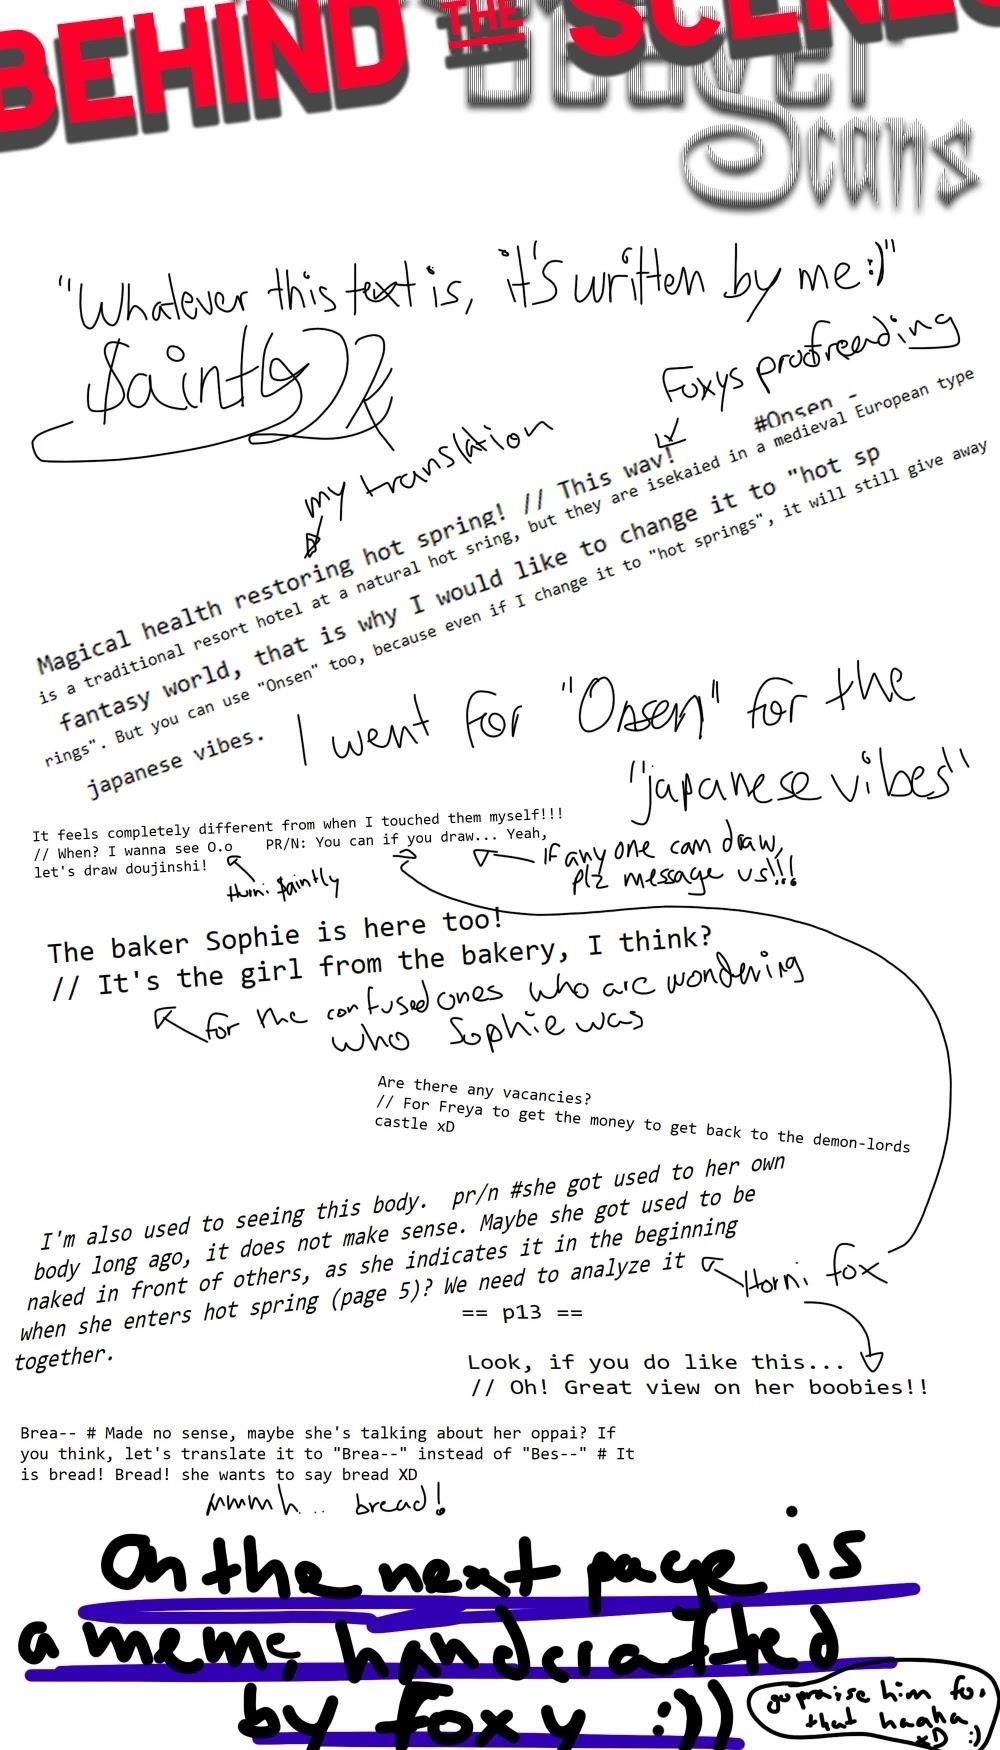 BEHIND THE SCENES
Scans
"Whatever this text is, it's written by me:)"
Saintly
Foxys proofreading
my translation
#Onsen -
Magical health restoring hot spring! // This way!
is a traditional resort hotel at a natural hot sring, but they are isekaied in a medieval European type
fantasy world, that is why I would like to change it to "hot sp
rings". But you can use "Onsen" too, because even if I change it to "hot springs", it will still give away
japanese vibes.
I went for "Onsen" for the
"japanese vibes"
It feels completely different from when I touched them myself!!!
// When? I wanna see O.o PR/N: You can if you draw... Yeah,
let's draw doujinshi!
if any one can draw,
plz message us!!!
Horni Saintly
The baker Sophie is here too!
// It's the girl from the bakery, I think?
for the confused ones who are wondering
who Sophie was
Are there any vacancies?
// For Freya to get the money to get back to the demon-lords
castle xD
I'm also used to seeing this body. pr/n #she got used to her own
body long ago, it does not make sense. Maybe she got used to be
naked in front of others, as she indicates it in the beginning
when she enters hot spring (page 5)? We need to analyze it
together.
Horni fox
== p13 ==
Look, if you do like this...
// Oh! Great view on her boobies!!
Brea-- # Made no sense, maybe she's talking about her oppai? If
you think, let's translate it to "Brea--" instead of "Bes--" # It
is bread! Bread! she wants to say bread XD
Mmmh... bread!
On the next page is
a meme, handcrafted
by foxy :))
go praise him for
that haaha
xD :)